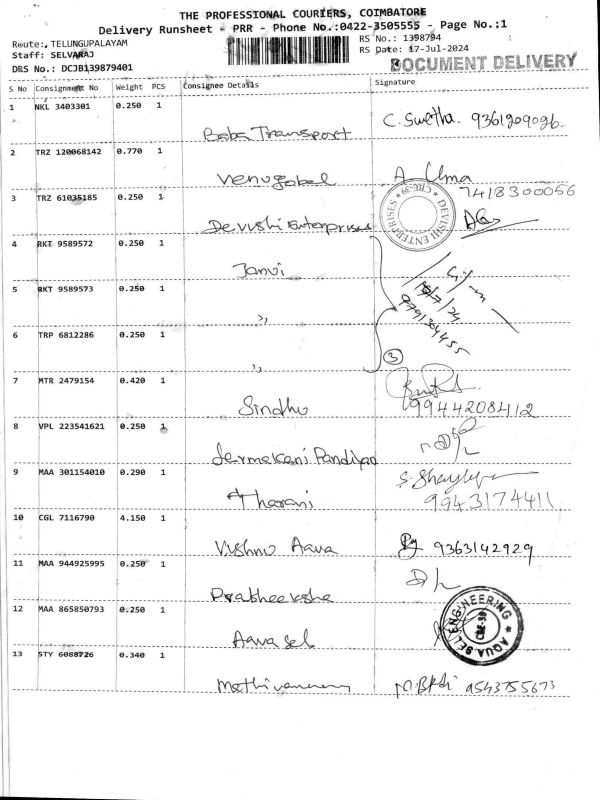 THE PROFESSIONAL COURIERS, COIMBATORE
Delivery Runsheet - PRR - Phone No.:0422-3505555 - Page No.:1
Route: TELUNGUPALAYAM RS No.: 1398794
Staff: SELVARAJ RS Date: 17-Jul-2024
DRS No.: DCJB139879401 DOCUMENT DELIVERY
S No Consignment No Weight PCS Consignee Details Signature
1 NKL 3403301 0.250 1
Baba Transport C. Swetha. 9361209026.
2 TRZ 120068142 0.770 1
Venugopal A Uma
7418300056
3 TRZ 61035185 0.250 1
Devishi Enterprises
DEVISHI ENTERPRISES CBE-39
4 RKT 9589572 0.250 1
Janvi
5 RKT 9589573 0.250 1
,,
6 TRP 6812286 0.250 1
,,
3
7 MTR 2479154 0.420 1
Sindhu 9944208412
8 VPL 223541621 0.250 1
Pandiyan
9 MAA 301154010 0.290 1
Tharani 9943174411
10 CGL 7116790 4.150 1
Vishnu Aawa 9363142929
11 MAA 944925995 0.250 1
Prabheeksha
12 MAA 865850793 0.250 1
Aawa sel
AQUA SEL ENGINEERING CBE-39
13 STY 6088726 0.340 1
9543755673